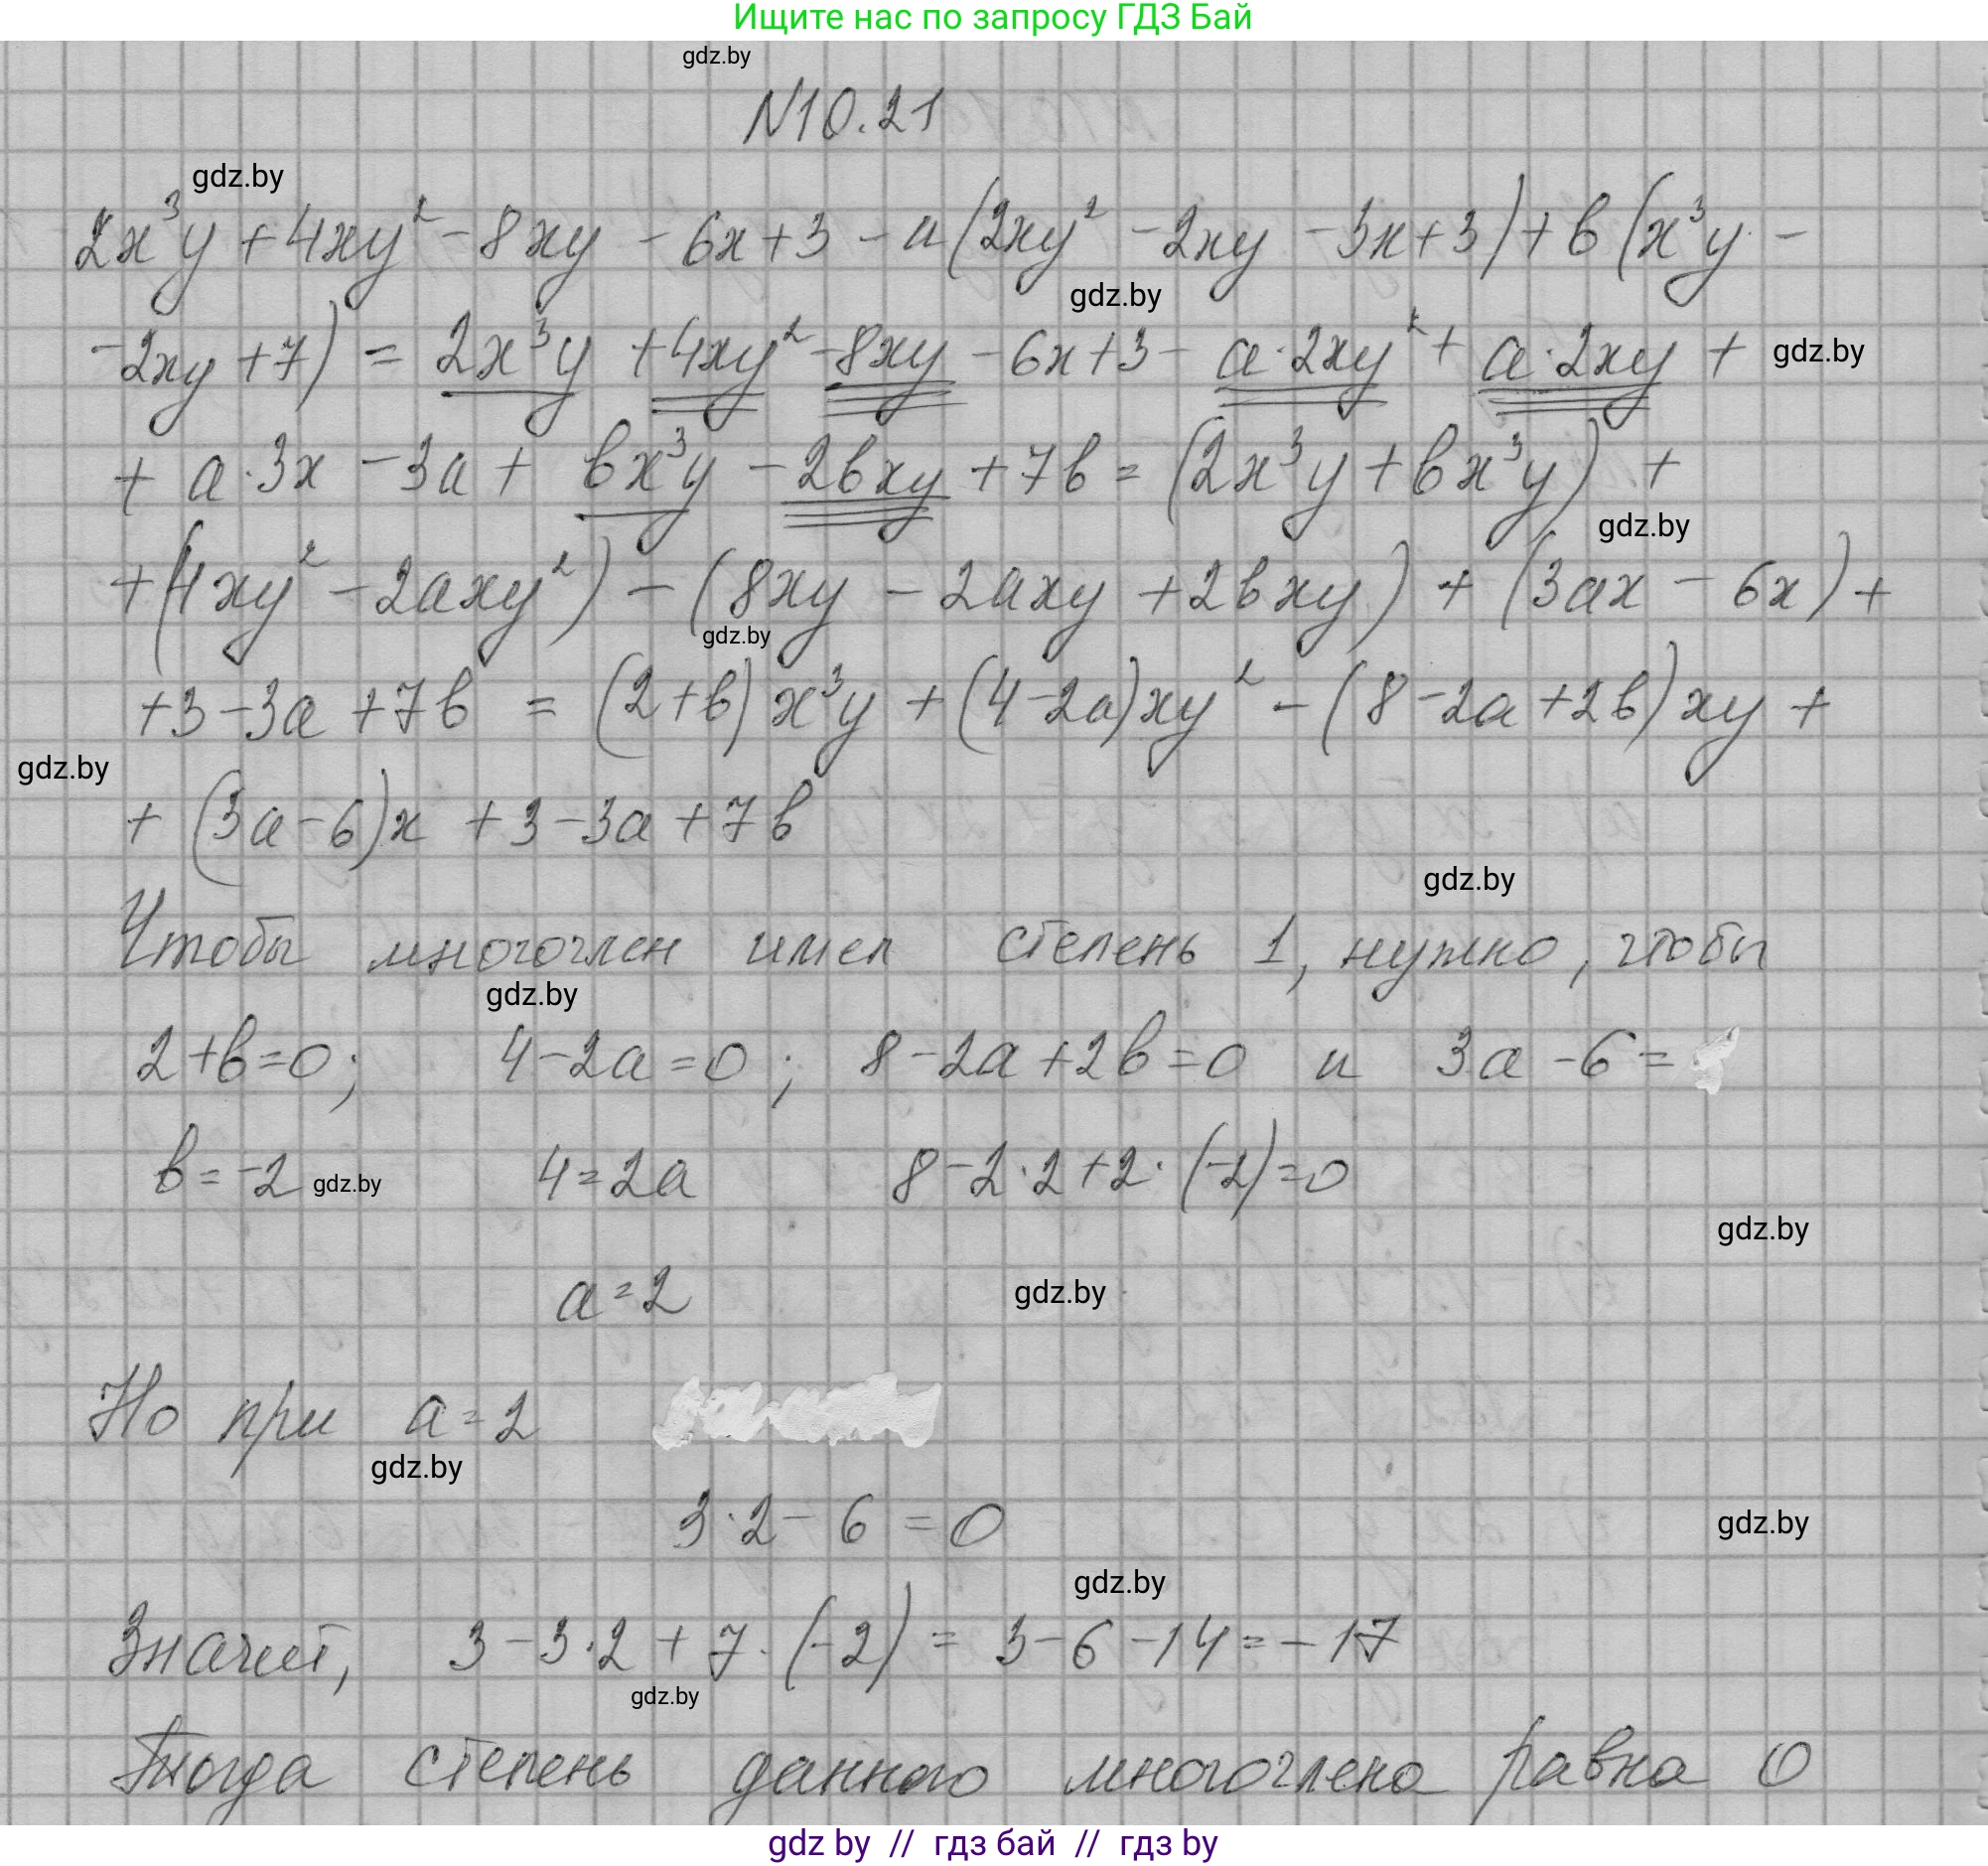 Ищите нас по запросу ГДЗ Бай
gdz.by
N10.21
gdz.by
2x³y + 4xy² - 8xy - 6x + 3 - a(2xy² - 2xy - 3x + 3) + b(x³y -
gdz.by
- 2xy + 7) = 2x³y + 4xy² - 8xy - 6x + 3 - a·2xy² + a·2xy +
gdz.by
+ a·3x - 3a + bx³y - 2bxy + 7b = (2x³y + bx³y) +
gdz.by
+ (4xy² - 2axy²) - (8xy - 2axy + 2bxy) + (3ax - 6x) +
gdz.by
+ 3 - 3a + 7b = (2 + b)x³y + (4 - 2a)xy² - (8 - 2a + 2b)xy +
gdz.by
+ (3a - 6)x + 3 - 3a + 7b
gdz.by
Чтобы многочлен имел степень 1, нужно, чтобы
gdz.by
2 + b = 0; 4 - 2a = 0; 8 - 2a + 2b = 0 и 3a - 6 =
b = -2 4 = 2a 8 - 2·2 + 2·(-2) = 0
gdz.by
gdz.by
a = 2
gdz.by
Но при a = 2
gdz.by
3·2 - 6 = 0
gdz.by
gdz.by
Значит, 3 - 3·2 + 7·(-2) = 3 - 6 - 14 = -17
gdz.by
Тогда степень данного многочлена равна 0
gdz by // гдз бай // гдз by